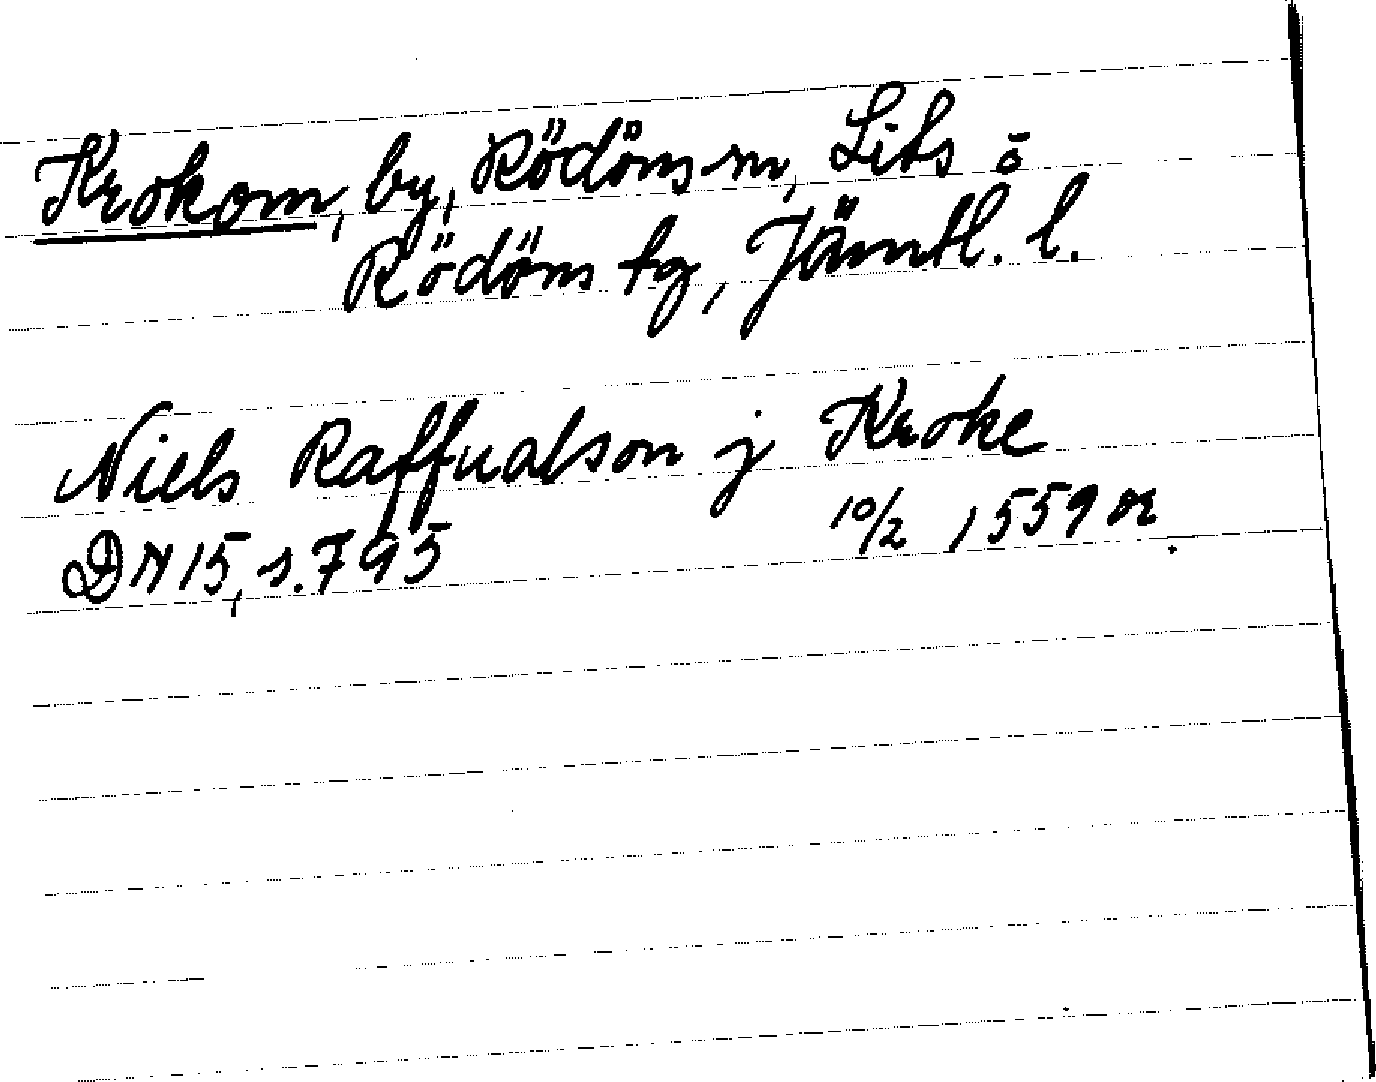 Krokom, by, Rödöns sn, Lits o
Rödöns tg, Jämtl. l.
Niels Raffualson j Kroke
DN 15, s. 795 10/2 1559 or.